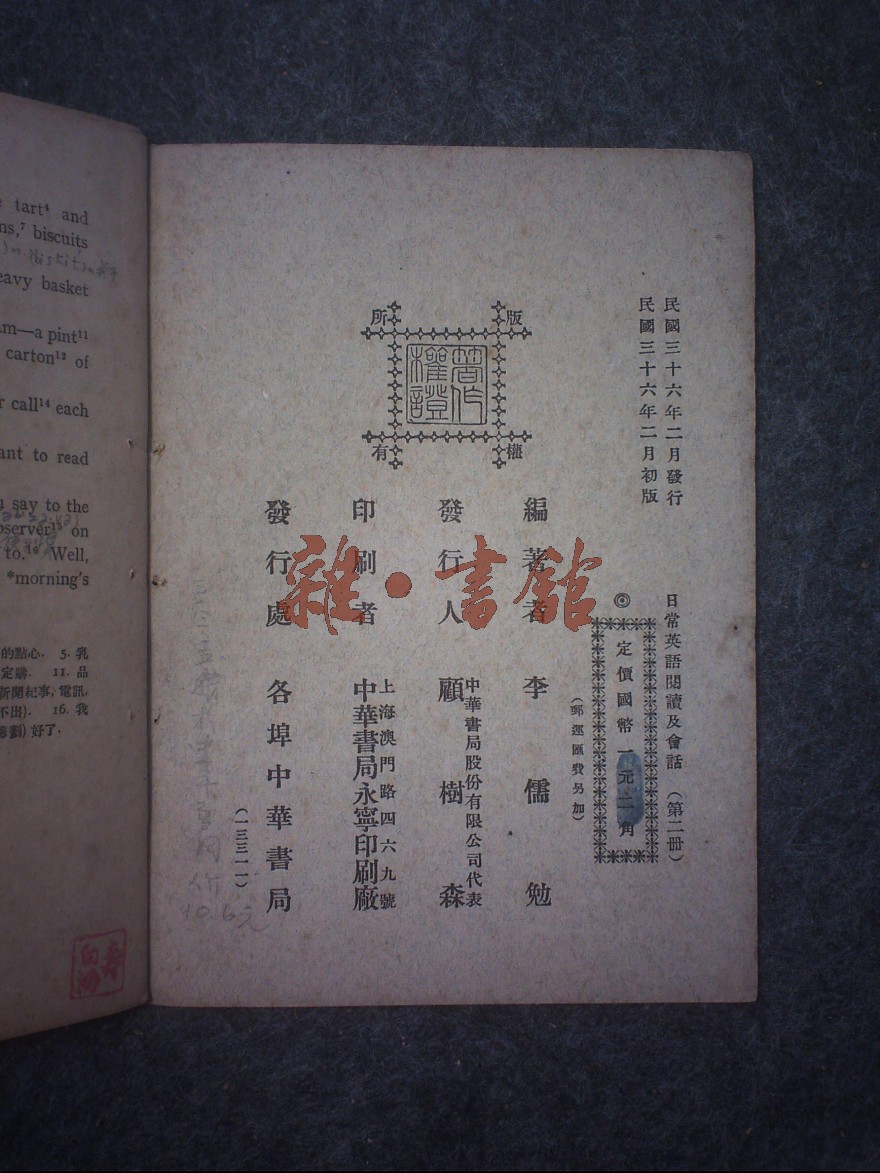 tart⁴ and
ns,⁷ biscuits
eavy basket
am—a pint¹¹
carton¹² of
r call¹⁴ each
ant to read
u say to the
bserver¹⁵ on
to.¹⁶ Well,
*morning's
的點心. 5. 乳
定購. 11. 品
新聞紀事, 電訊,
不出). 16. 我
好了.
民國三十六年二月發行
民國三十六年二月初版
日常英語閱讀及會話 (第二冊)
◎定價國幣一元二角
(郵運匯費另加)
版權所有
著作權證
編著者 李儒勉
發行人 中華書局股份有限公司代表 顧樹森
印刷者 上海澳門路四六九號 中華書局永寧印刷廠
發行處 各埠中華書局
(一三三一一)
10.6元
雜·書館